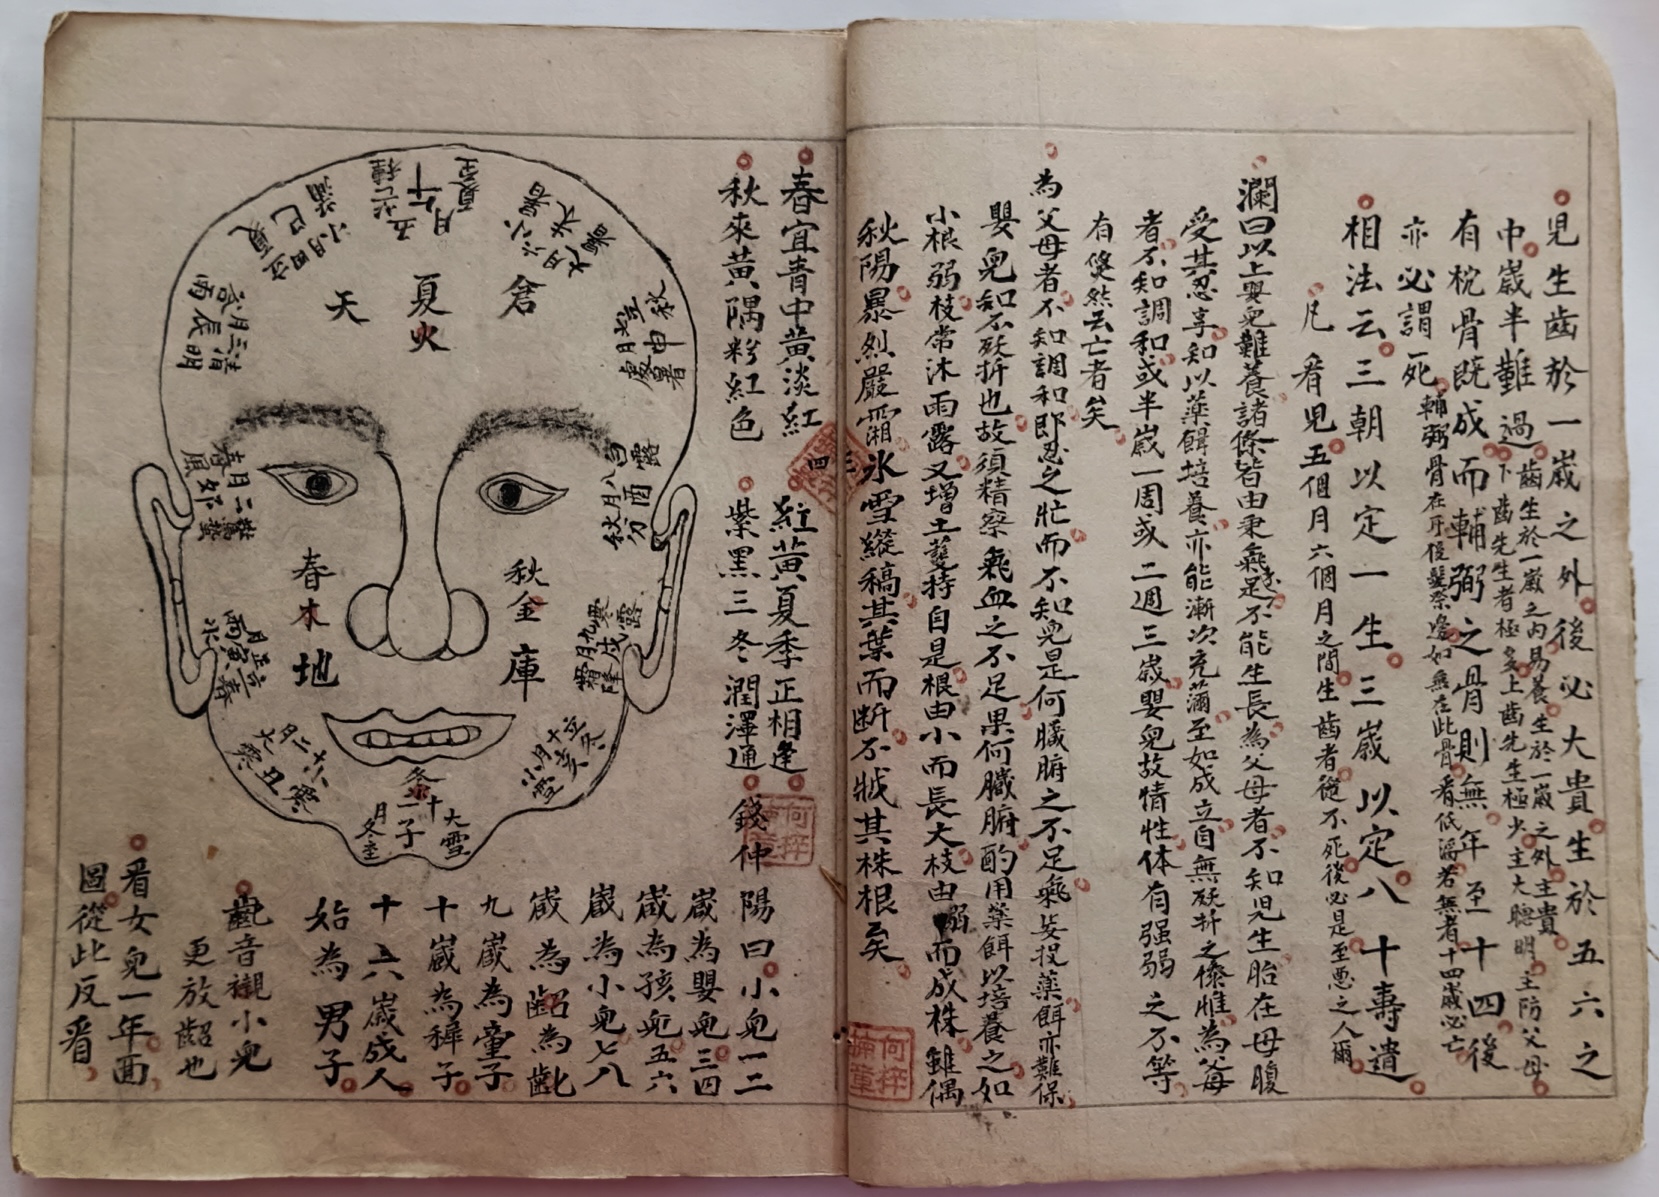 児生齒於一嵗之外後必大貴生於五六之
中嵗半難過
齒生於一嵗之內易養生於一嵗之外主貴
下齒先生者極多上齒先生極少主大聰明主防父母
有枕骨既成而輔弼之骨則無年至十四後
亦必謂死
輔弼骨在耳後
如無在此骨看低淺若無者十四嵗必亡
相法云三朝以定一生三嵗以定八十壽遺
凡看児五個月六個月之間生齒者從不死後必是至悪之人爾
瀾曰以上嬰兒難養諸條皆由秉氣不足不能生長為父母者不知児生胎在母腹
受其忍享知以藥餌培養亦能漸次充滿至如成立自無殀折之條惟為父母
者不知調和或半嵗一周或二週三嵗嬰兒故情性体有强弱之不等
有倐然云亡者矣
為父母者不知調和郎忍之壯而不知兒是何臟腑之不足氣妄投藥餌亦難保
嬰兒知不殀折也故須精察氣血之不足果何臟腑酌用藥餌以培養之如
小根弱枝常沐雨露又增土蔓持自是根由小而長大枝由弱而成株雖偶
秋陽暴烈嚴霜氷雪縱稿其葉而断不戕其株根矣
春宜青中黃淡紅
紅黃夏季正相逢
秋來黃隅粉紅色
紫黑三冬潤澤通
錢仲
陽曰小兒一二
嵗為嬰兒三四
嵗為孩兒五六
嵗為小兒七八
嵗為齠為齔
九嵗為童子
十嵗為稺子
十六嵗成人
始為男子
觀音襯小兒
更放齠也
看女兒一年面
圖從此反看
天
夏火
倉
春木
地
秋金
庫
冬
五月午芒種
夏至
六月未小暑
大暑
七月申立秋
處暑
八月酉白露
秋分
九月戌寒露
霜降
十月亥立冬
小雪
十一月子大雪
冬至
十二月丑小寒
大寒
正月寅立春
雨水
二月卯驚蟄
春風
三月辰清明
谷雨
四月巳立夏
小滿